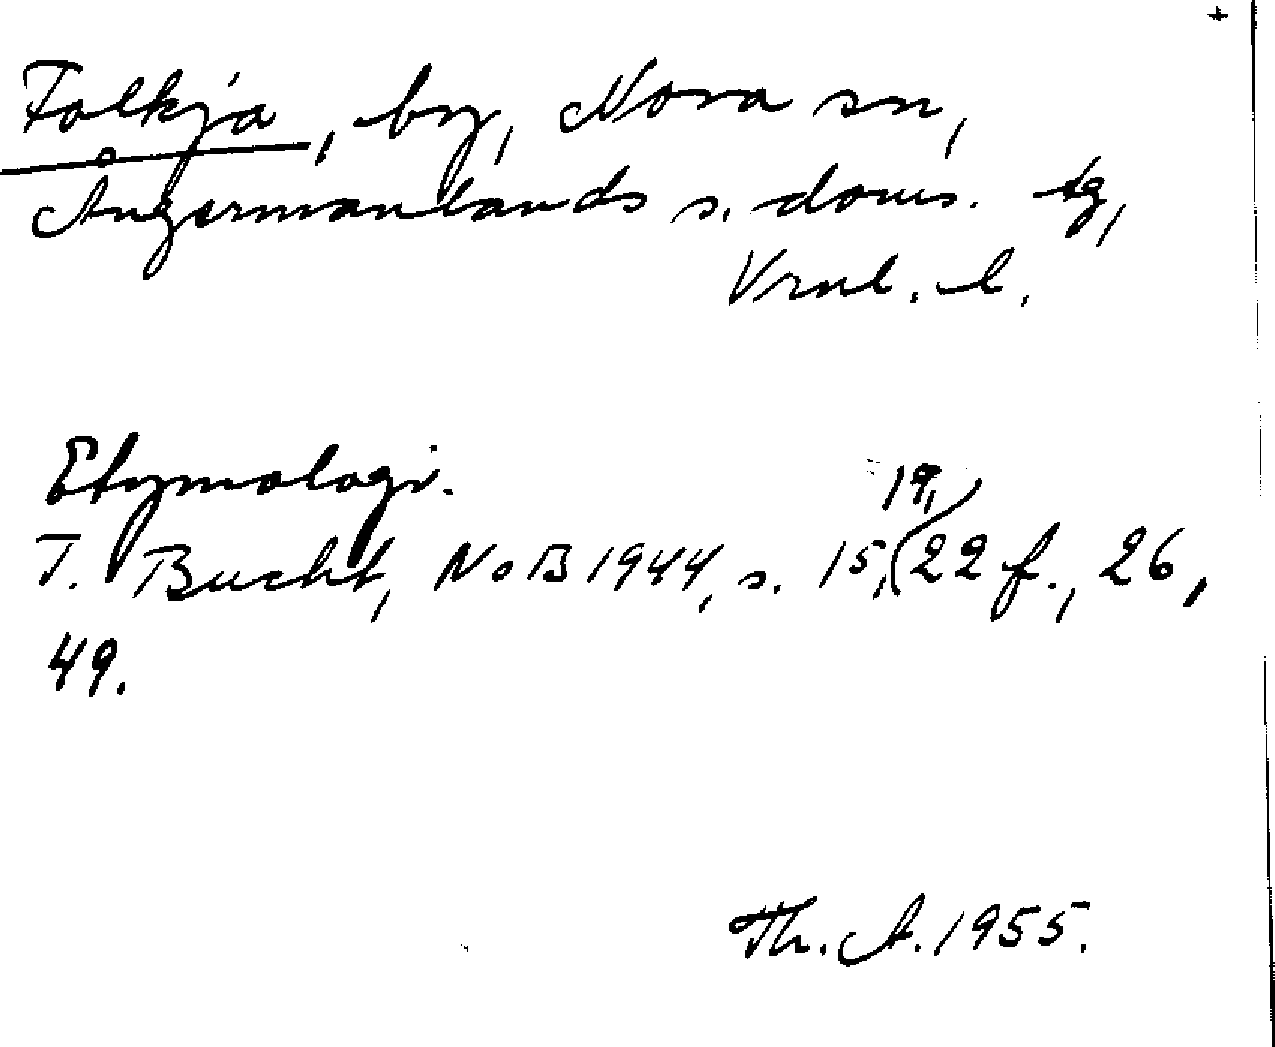 Folkja, by, Nora sn,
Ångermanlands s. doms. tg,
Vrnl. l.
Etymologi.
T. Bucht, NoB 1944, s. 15, 19, 22 f., 26,
49.
Th. A. 1955.